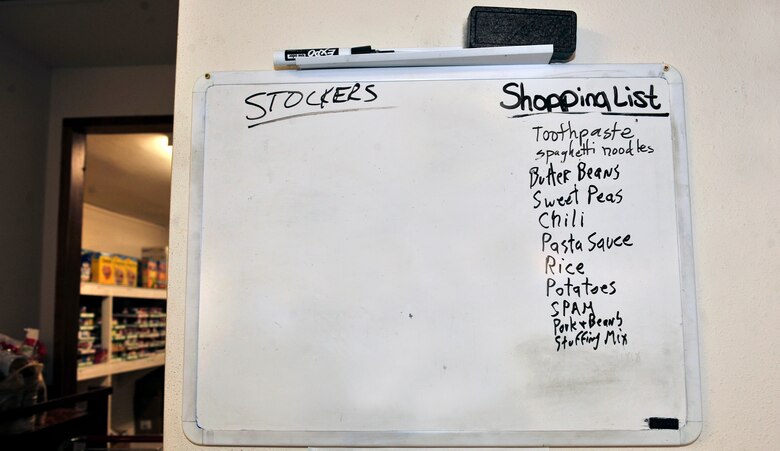 EXPO
STOCKERS
Shopping List
Toothpaste
spaghetti noodles
Butter Beans
Sweet Peas
Chili
Pasta Sauce
Rice
Potatoes
SPAM
Pork & Beans
Stuffing Mix